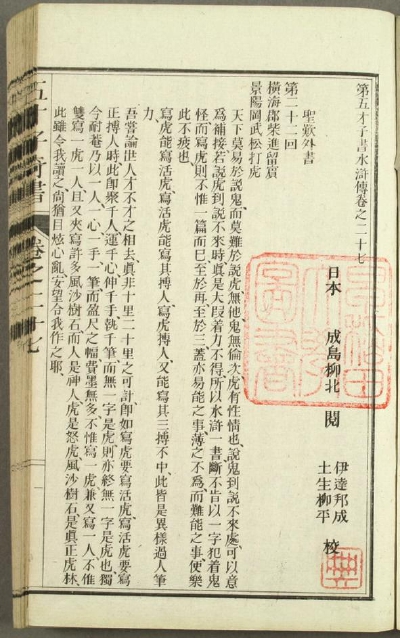 第五才子書水滸傳卷之二十七
日本 成島柳北 閱
伊達邦成
土生柳平 校
聖歎外書
第二十二回
橫海郡柴進留賓
景陽岡武松打虎
天下莫易於說鬼而莫難於說虎無他鬼無倫次虎有性情也說鬼到說不來處可以意
爲補接若說虎到說不來時眞是大段着力不得所以水滸一書斷不肯以一字犯着鬼
怪而寫虎則不惟一篇而已至於再至於三蓋亦易能之事薄之不爲而難能之事便樂
此不疲也
寫虎能寫活虎寫活虎能寫其搏人寫虎搏人又能寫其三搏不中此皆是異樣過人筆
力
吾嘗論世人才不才之相去眞非十里二十里之可計卽如寫虎要寫活虎寫活虎要寫
正搏人時此卽聚千人運千心伸千手執千筆而無一字是虎則亦終無一字是虎也獨
今耐菴乃以一人一心一手一筆而盈尺之幅費墨無多不惟寫一虎兼又寫一人不惟
雙寫一虎一人且又夾寫許多風沙樹石而人是神人虎是怒虎風沙樹石是眞正虎林
此雖令我讀之尚猶目眩心亂安望令我作之耶
五才子奇書 卷之二十七